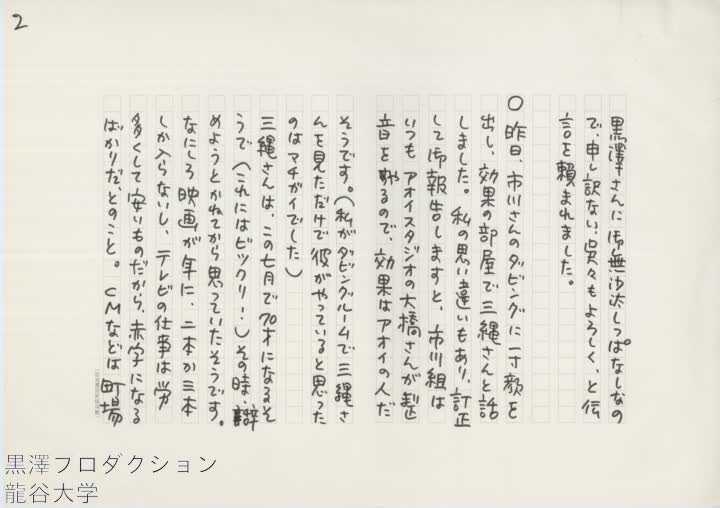 2
黒澤さんに御無沙汰しっぱなしなの
で、申し訳ない、呉々もよろしく、と伝
言を頼まれました。
○昨日、市川さんのダビングに一寸顔を
出し、効果の部屋で三縄さんと話
しました。私の思い違いもあり、訂正
して御報告しますと、市川組は
いつもアオイスタジオの大橋さんが録
音をやるので、効果はアオイの人だ
そうです。(私がダビングルームで三縄さ
んを見ただけで彼がやっていると思った
のはマチガイでした)
三縄さんは、この七月で70才になるそ
うで(これにはビックリ!)その時、辞
めようとかねてから思っていたそうです。
なにしろ映画が年に、二本か三本
しか入らないし、テレビの仕事は労
多くして安いものだから、赤字になる
ばかりだ、とのこと。CMなどは町場
黒澤プロダクション
龍谷大学